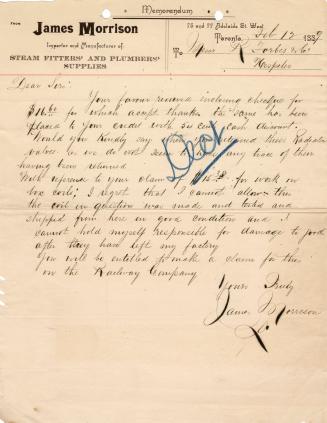 Memorandum
FROM
James Morrison
Importer and Manufacturer of
STEAM FITTERS' AND PLUMBERS'
SUPPLIES
75 and 77 Adelaide St. West
Toronto, Feb 12 1887
To Messrs R Forbes & Co
Hespeler
Dear Sir
Your favour received inclosing cheque for
for which accept thanks the same has been
placed to your credit with cash discount.
Would you kindly say when you returned these Radiator
valves as we do not seem to have any trace of their
having been returned
With reference to your claim of for work on
coils; I regret that I cannot allow this
the coil in question was made and tested and
shipped from here in good condition and I
cannot hold myself responsible for damage to goods
after they have left my factory
You will be entitled to make a claim for this
on the Railway Company
Yours Truly
James Morrison